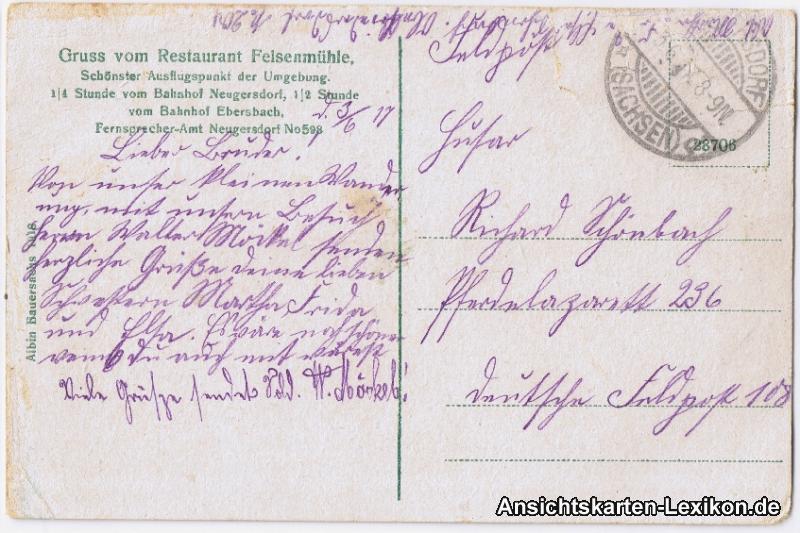 Gruss vom Restaurant Felsenmühle,
Schönster Ausflugspunkt der Umgebung.
1/4 Stunde vom Bahnhof Neugersdorf, 1/2 Stunde
vom Bahnhof Ebersbach,
Fernsprecher-Amt Neugersdorf No 598
d. 3/6 17
Lieber Bruder!
Von unser kleinen Wander
ung, mit unsern Besuch
Herrn Walter Möckel senden
herzliche Grüße deine lieben
Schwestern Martha, Frida
und Elsa. Es wäre noch schöner
wenn du auch mit wärest
Viele Grüsze sendet Sold. W. Möckel!
Albin Bauersachs 1916
Feldpost
DORF
(SACHSEN)
8-9N
28706
Husar
Richard Schönbach
Pferdelazarett 236
Deutsche Feldpost 108
Ansichtskarten-Lexikon.de